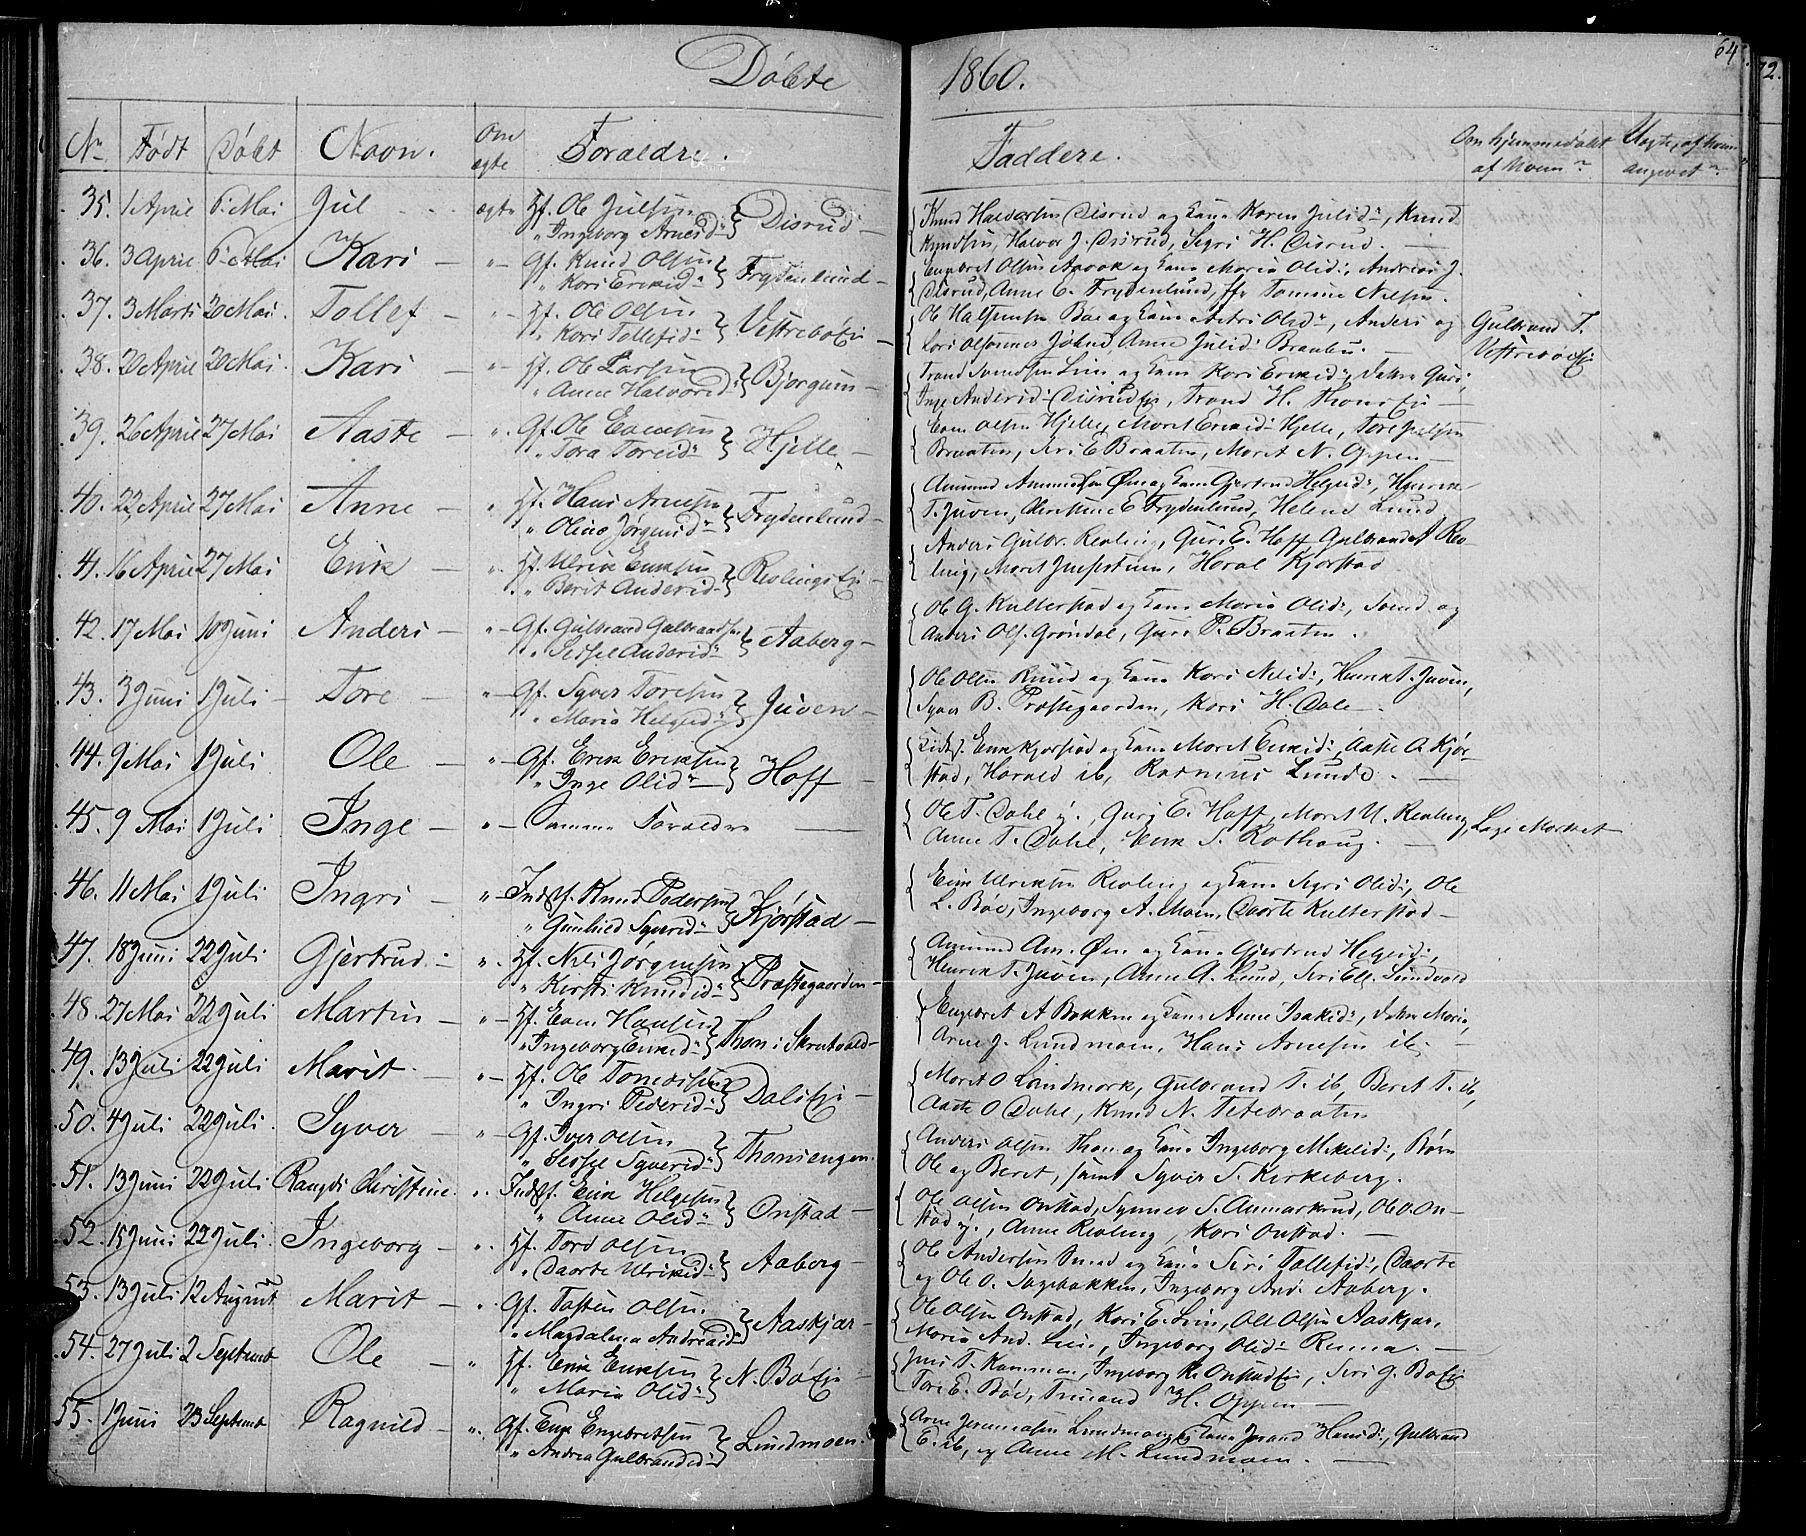 64.
72.
Döbte 1860.
No Født Døbt Navn. Om ægte Foraeldre. Faddere. Om hjemmedøbt af Hvem? Uægte, af hvem angivet?
35. 1 April 6 Mai Jul ægte Hf. Ole Julsen
" Ingeborg Arnesd: } Disrud
Knud Halvorsen Disrud og Kone Karen Julsd:, Knud
Knudsen, Halvor J. Disrud, Sigri H. Disrud.
36. 3 April 6 Mai Kari " Gf. Knud Olsen
" Kari Eriksd: } Frydenlund
Engebret Olsen og Kone Maria Olsd:, Andreas J.
Disrud, Anne E. Frydenlund,
37. 3 Marts 20 Mai Tollef " Hf. Ole Olsen
" Kari Tollefsd: } Vestrebøeje
Ole Halstensen Bøe og Kone Olsd:, Anders og
Anne Julsd: Braaten.
Gulbrand T.
Vestrebøeje
38. 20 April 20 Mai Kari " Hf. Ole Larsen
" Anne Halvorsd: } Bjørgum
Trond Svendsen Lien og Kone Kari Eriksd:, Guri,
Inge Andersd: Disrudeje, Trond H. Thonseje
39. 26 April 27 Mai Aaste " Gf. Ole Evensen
" Tora Toresd: } Hjelle
Even Olsen Hjelle, Marit Eriksd: Hjelle, Tore Julsen
Braaten, Siri E Braaten, Marit N. Oppen
40. 22 April 27 Mai Anne " Hf. Hans Arnesen
" Oline Jørgensd: } Frydenlund
Amund Amundsen Øen og Kone Gjertrud Helgesd:, Henrik
T. Juven, Christine E Frydenlund, Helene Lund
41. 16 April 27 Mai Erik " Hf. Ulrik Eriksen
" Berit Andersd: } Revlingseje
Anders Gulbr. Revling, Guri E. Hoff Gulbrand A Rev-
ling, Marit, Haral Kjørstad
42. 17 Mai 10 Juni Anders " Gf. Gulbrand Gulbrandsen
" Sissel Andersd: } Aaberg
Ole G. Kulterstad og Kone Maria Olsd:, Svend og
Anders Ols. Grøndal, Guri P. Braaten.
43. 3 Juni 1 Juli Tore " Gf. Syver Toresen
" Maria Helgesd: } Juven
Ole Olsen Ruud og Kone Kari Nilsd:, Henrik T. Juven,
Syver B. Præstegaarden, Kari H. Dale
44. 9 Mai 1 Juli Ole " Gf. Erik Eriksen
" Inge Olsd: } Hoff
Erik Kjørstad og Kone Marit Eriksd:, Aaste A. Kjør-
stad, Harald ib, Rasmus Lunde.
45. 9 Mai 1 Juli Inge " Samme Foraeldre
Ole T. Dahl y., Guri E. Hoff, Marit U. Revling,
Anne T. Dahl, Erik S. Rothaug.
46. 11 Mai 1 Juli Ingri " Indst. Knud Pedersen
" Gunhild Syversd: } Kjørstad
Erik Ulriksen Revling og Kone Sigri Olsd:, Ole
L. Bøe, Ingeborg A. Moen, Daarte Kulterstad
47. 18 Juni 22 Juli Gjertrud " Hf. Nils Jørgensen
" Kirsti Knudsd: } Præstegaarden
Amund Am. Øen og Kone Gjertrud Helgesd:,
Henrik T. Juven, Anne A. Lund, Siri Ell. Sundvold
48. 27 Mai 22 Juli Martin " Hf. Even Hansen
" Ingeborg Eriksd: } Thon i Skrutvold
Engebret A Bakken og Kone Anne Isaksd:, Maria,
Arne J. Lundmoen, Hans Arnesen ib.
49. 13 Juli 22 Juli Marit " Hf. Ole Tomassen
" Ingri Pedersd: } Dalseje
Marit O Lundmork, Gulbrand T. ib, Beret T. ib,
Aaste O Dahl, Knud N. Tetebraaten
50. 4 Juli 22 Juli Syver " Gf. Iver Olsen
" Sissel Syversd: } Thonsengen
Anders Olsen Thon og Kone Ingeborg Mikelsd:, Børn
Ole og Beret, samt Syver S. Kirkeberg.
51. 13 Juni 22 Juli Rangdi Christine " Indst. Erik Helgesen
" Anne Olsd: } Onstad
Ole Olsen Onstad, Synnev S. Aamarkrud, Ole O. On-
stad y., Anne Revling, Kari Onstad.
52. 15 Juni 22 Juli Ingeborg " Hf. Tord Olsen
" Daarte Ulriksd: } Aaberg
Ole Andersen Smed og Kone Siri Tollefsd:, Daarte
og Ole O. Sagebakken, Ingeborg And. Aaberg.
53. 13 Juli 12 August Marit " Gf. Tosten Olsen
" Magdalena Andreasd: } Aaskjær
Ole Olsen Onstad, Kari E. Lien, Ole Olsen Aaskjær,
Maria And. Lien, Ingeborg Olsd: Renna.
54. 27 Juli 2 Septemb Ole " Hf. Erik Eriksen
" Maria Olsd: } N. Bøeje
Jens T. Kammen, Ingeborg K. Onstadeje, Siri G. Bøeje
Tore E. Bøe, H. Oppen
55. 1 Juni 23 Septemb Ragnild " Gf. Erik Engebretsen
" Andrea Gulbrandsd: } Lundmoen
Arne Jeremiasen Lundmoen og Kone Jorand Hansd:, Gulbrand
E. ib, og Anne M. Lundmoen.